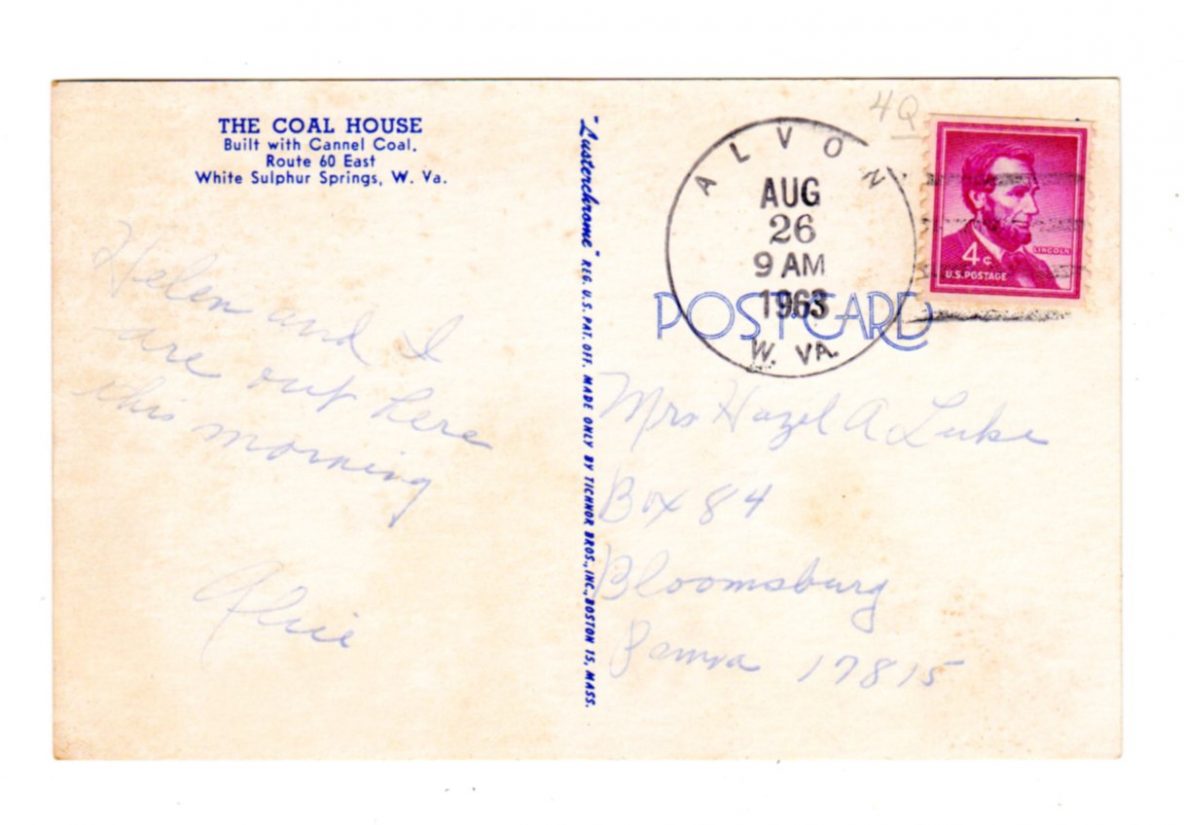 THE COAL HOUSE
Built with Cannel Coal.
Route 60 East
White Sulphur Springs, W. Va.
Helen and I
are out here
this morning
Alice
"Lusterchrome" REG. U.S. PAT. OFF. MADE ONLY BY TICHNOR BROS., INC., BOSTON 15, MASS.
4Q
ALVON
AUG
26
9 AM
1963
W. VA.
4¢
LINCOLN
U.S. POSTAGE
POST CARD
Mrs Hazel A Luke
Box 84
Bloomsburg
Penna 17815